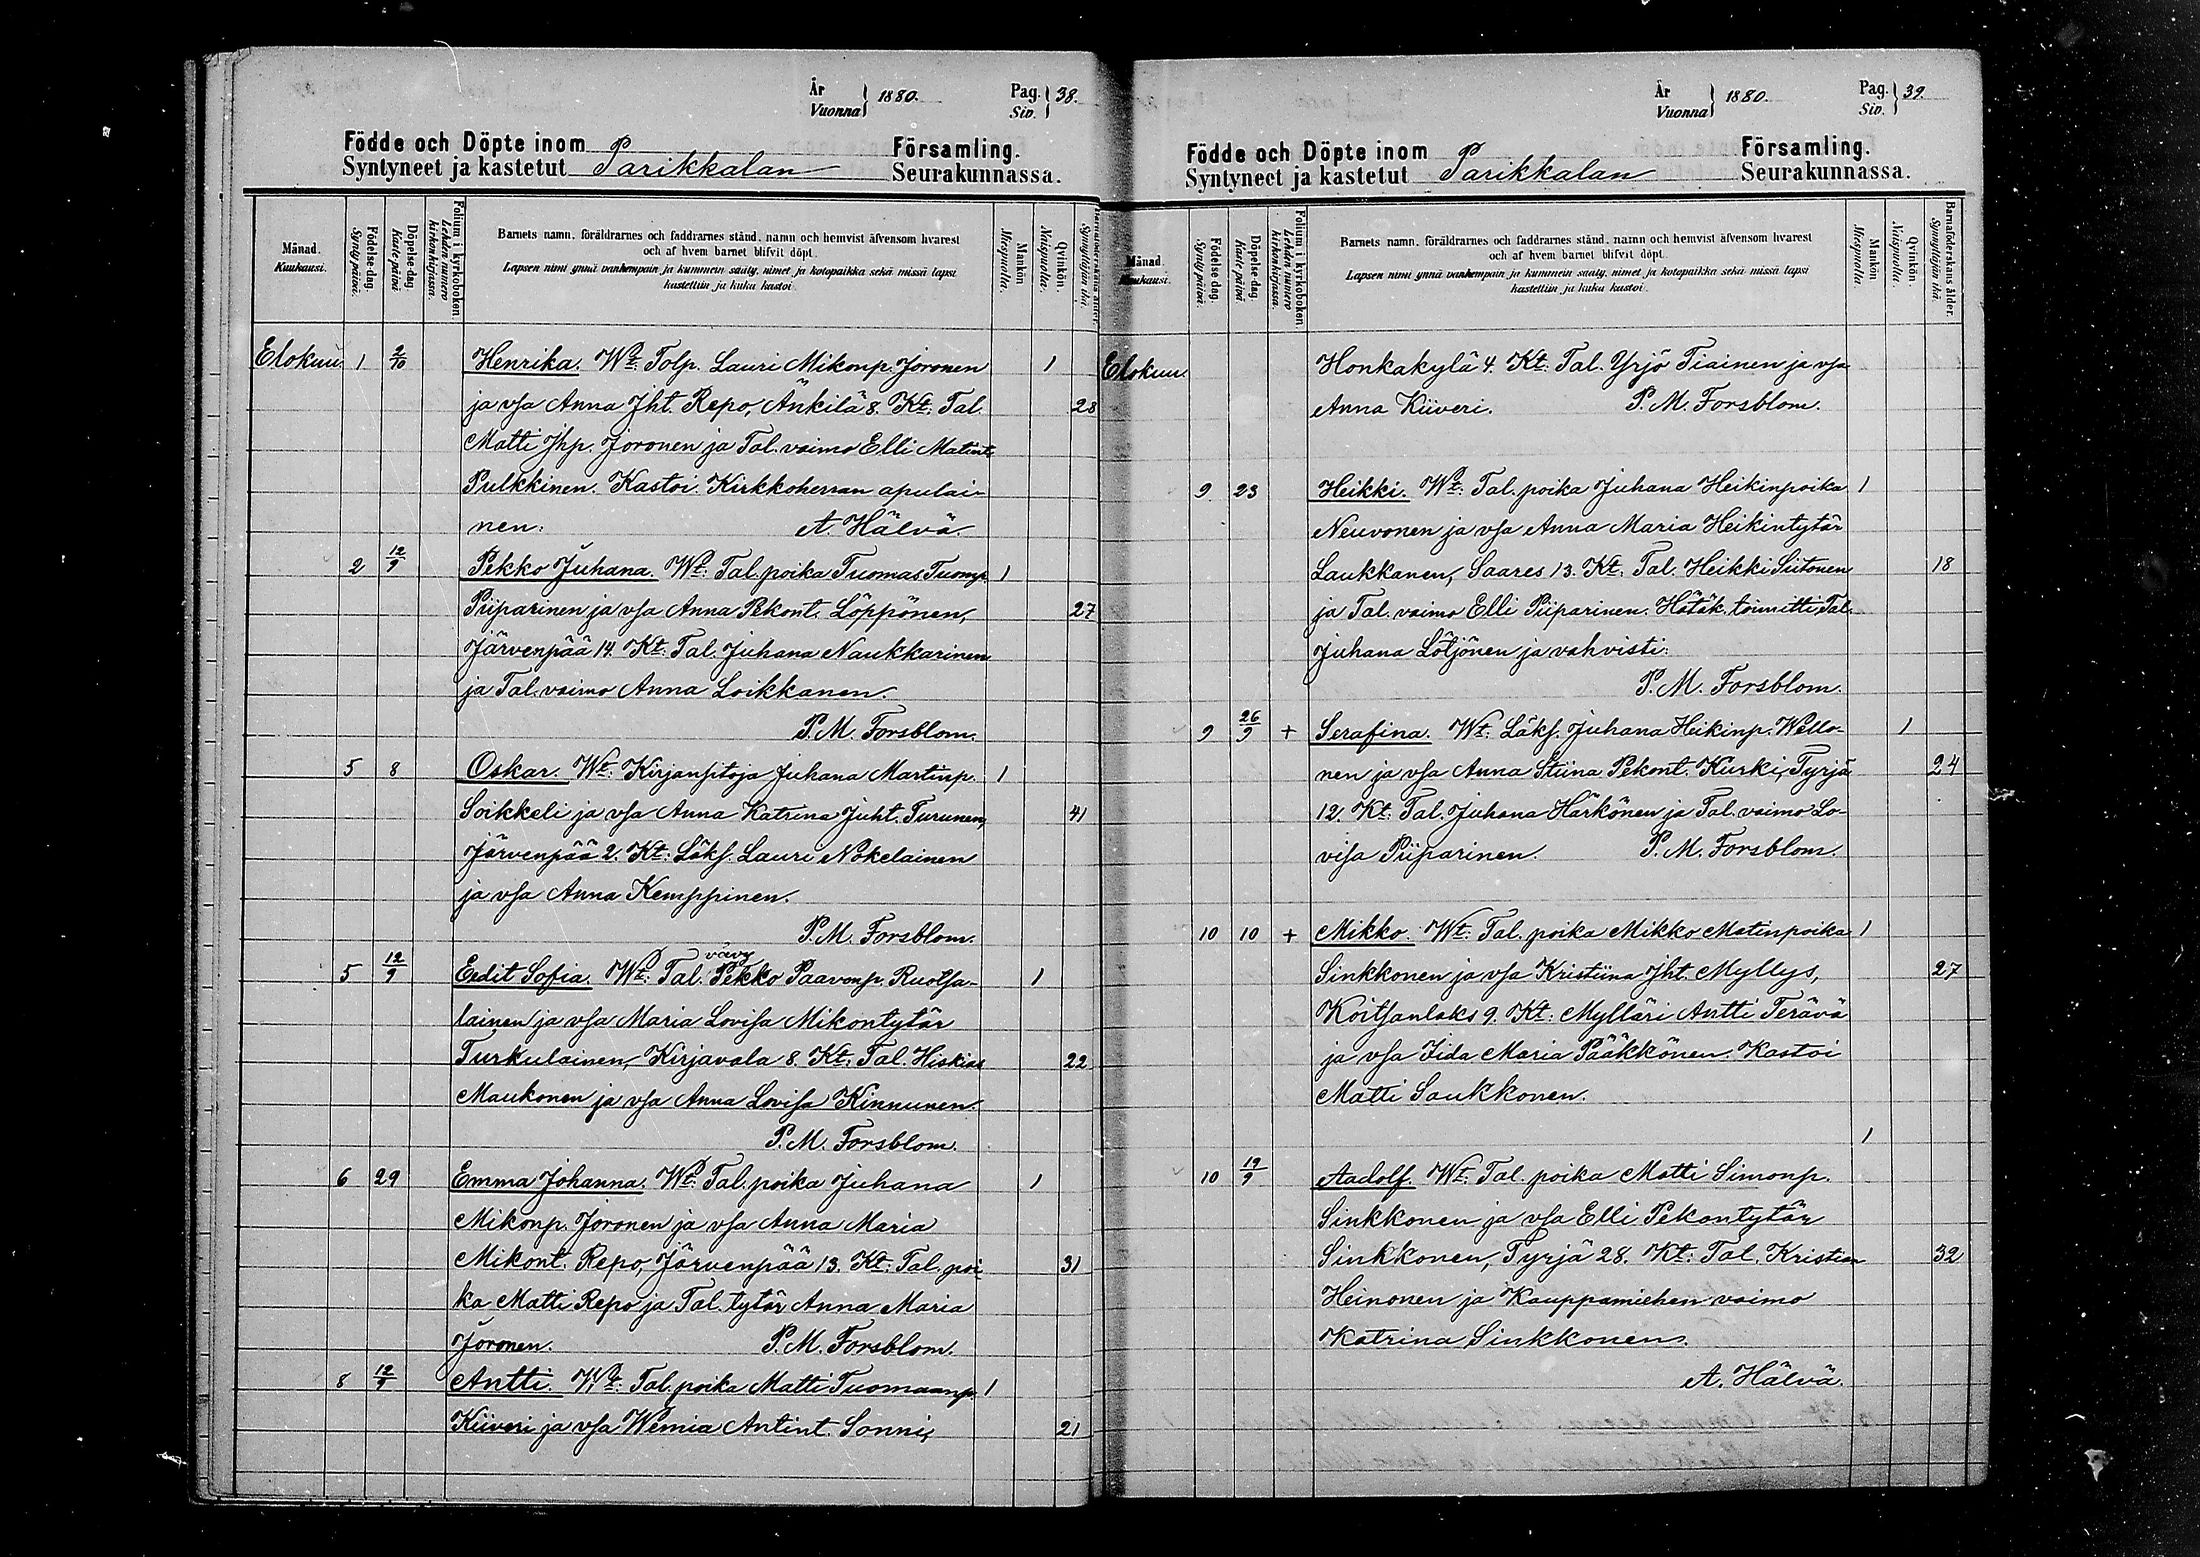 År
Vuonna } 1880.
Pag.
Siv. } 38.
Födde och Döpte inom Församling.
Syntyneet ja kastetut Parikkalan Seurakunnassa.
Månad.
Kuukausi.
Födelse-dag.
Synty päivä.
Döpelse-dag.
Kaste päivä
Folium i kyrkoboken.
Lehden numero kirkonkirjassa.
Barnets namn, föräldrarnes och faddrarnes stånd, namn och hemvist äfvensom hvarest
och af hvem barnet blifvit döpt.
Lapsen nimi ynnä vanhempain ja kummein sääty, nimet ja kotopaikka sekä missä lapsi
kastettiin ja kuka kastoi.
Mankön
Miespuolia.
Qvinkön.
Naispuolia.
Elokuu. 1 2/10 Henrika. Wt: Tolp. Lauri Mikonp. Joronen 1
ja vsa Anna Jht. Repo, Änkilä 8. Kt: Tal. 28
Matti Jhp. Joronen ja Tal. vaimo Elli Matint.
Pulkkinen. Kastoi Kirkkoherran apulai-
nen: A. Hälvä.
2 12/9 Pekko Juhana. Wt: Tal. poika Tuomas Tuomp. 1
Piiparinen ja vsa Anna Pekont. Löppönen, 27
Järvenpää 14. Kt: Tal. Juhana Naukkarinen
ja Tal. vaimo Anna Loikkanen.
P. M. Forsblom.
5 8 Oskar. Wt: Kirjansitoja Juhana Martinp. 1
Soikkeli ja vsa Anna Katrina Juht. Turunen, 41
Järvenpää 2. Kt: Läks. Lauri Nokelainen
ja vsa Anna Kemppinen.
P. M. Forsblom.
vävy
5 12/9 Eedit Sofia. Wt: Tal. Pekko Paavonp. Ruotsa- 1
lainen ja vsa Maria Lovisa Mikontytär
Turkulainen, Kirjavala 8. Kt: Tal. Hiskias 22
Maukonen ja vsa Anna Lovisa Kinnunen.
P. M. Forsblom.
6 29 Emma Johanna. Wt: Tal. poika Juhana 1
Mikonp. Joronen ja vsa Anna Maria
Mikont. Repo, Järvenpää 13. Kt: Tal. poi- 31
ka Matti Repo ja Tal. tytär Anna Maria
Joronen. P. M. Forsblom.
8 12/9 Antti. Wt: Tal. poika Matti Tuomaanp. 1
Kiiveri ja vsa Wemia Antint. Sonni, 21
År
Vuonna } 1880.
Pag.
Siv. } 39.
Födde och Döpte inom Församling.
Syntyneet ja kastetut Parikkalan Seurakunnassa.
Månad.
Kuukausi.
Födelse-dag.
Synty päivä.
Döpelse-dag.
Kaste päivä
Folium i kyrkoboken.
Lehden numero kirkonkirjassa.
Barnets namn, föräldrarnes och faddrarnes stånd, namn och hemvist äfvensom hvarest
och af hvem barnet blifvit döpt.
Lapsen nimi ynnä vanhempain ja kummein sääty, nimet ja kotopaikka sekä missä lapsi
kastettiin ja kuka kastoi.
Mankön
Miespuolia
Qvinkön.
Naispuolia.
Barnaföderskans ålder.
Synnyttäjän ikä.
Elokuu. Honkakylä 4. Kt: Tal. Yrjö Tiainen ja vsa
Anna Kiiveri. P. M. Forsblom.
9 23 Heikki. Wt: Tal. poika Juhana Heikinpoika 1
Neuvonen ja vsa Anna Maria Heikintytär
Laukkanen, Saares 13. Kt: Tal. Heikki Siitonen 18
ja Tal. vaimo Elli Piiparinen. Hätäk. toimitti Tal.
Juhana Lötjönen ja vahvisti:
P. M. Forsblom.
9 26/9 + Serafina. Wt: Läks. Juhana Heikinp. Wello- 1
nen ja vsa Anna Stiina Pekont. Kurki, Tyrjä 24
12. Kt: Tal. Juhana Härkönen ja Tal. vaimo Lo-
visa Piiparinen. P. M. Forsblom.
10 10 + Mikko. Wt: Tal. poika Mikko Matinpoika 1
Sinkkonen ja vsa Kristiina Jht. Myllys, 27
Koitsanlaks 9. Kt: Mylläri Antti Terävä
ja vsa Iida Maria Pääkkönen. Kastoi
Matti Saukkonen.
1
10 19/9 Aadolf. Wt: Tal. poika Matti Simonp.
Sinkkonen ja vsa Elli Pekontytär
Sinkkonen, Tyrjä 28. Kt: Tal. Kristian 32
Heinonen ja Kauppamiehen vaimo
Katrina Sinkkonen.
A. Hälvä.